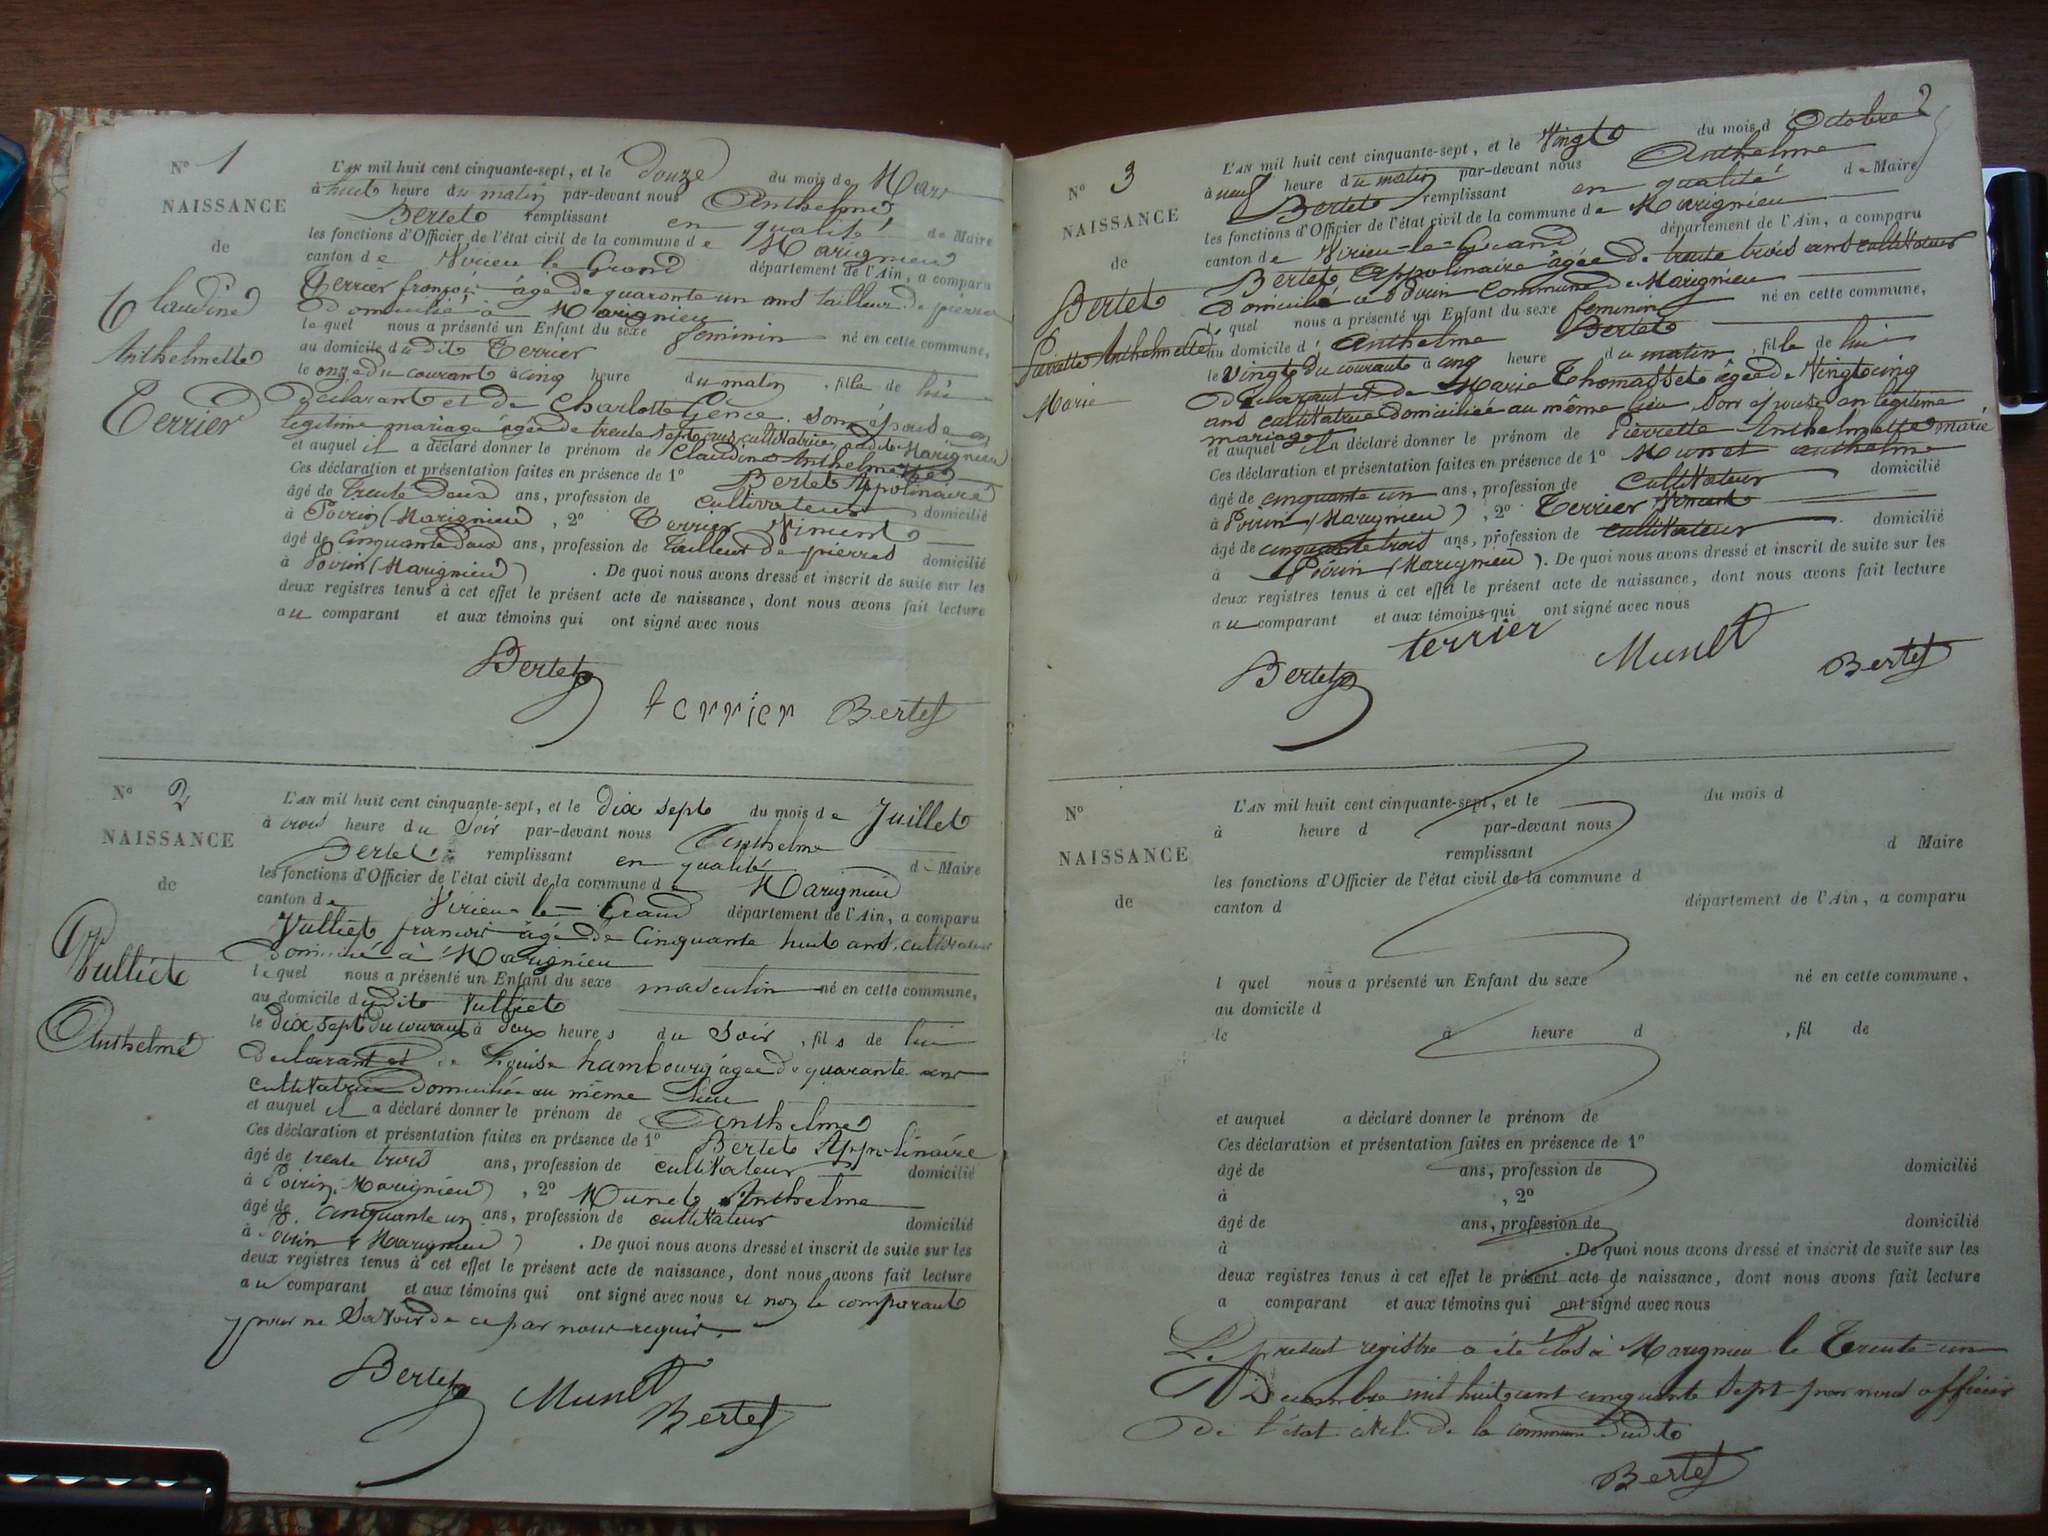 N° 1
NAISSANCE
de
Claudine
Anthelmette
Terrier
L'AN mil huit cent cinquante-sept, et le douze du mois de Mars
à huit heure du matin par-devant nous Anthelme
Bertet remplissant en qualité de Maire
les fonctions d'Officier de l'état civil de la commune de Marignieu
canton de Virieu le Grand département de l'Ain, a comparu
Terrier françois âgé de quarante un ans tailleur de pierre
Domicilié à Marignieu
lequel nous a présenté un Enfant du sexe feminin né en cette commune,
au domicile dudit Terrier
le onze du courant à cinq heure du matin, fille de lui
Déclarant et de Charlotte Gence son épouse en
legitime mariage agée de trente sept ans cultivatrice audit Marignieu
et auquel il a déclaré donner le prénom de Claudine Anthelmette
Ces déclaration et présentation faites en présence de 1° Bertet Appolinaire
âgé de trente Deux ans, profession de cultivateur domicilié
à Poirin (Marignieu), 2° Terrier Vincent
âgé de Cinquante deux ans, profession de tailleur de pierres domicilié
à Poirin (Marignieu). De quoi nous avons dressé et inscrit de suite sur les
deux registres tenus à cet effet le présent acte de naissance, dont nous avons fait lecture
au comparant et aux témoins qui ont signé avec nous
Bertet
terrier Bertet
N° 2
NAISSANCE
de
Vulliet
Anthelme
L'AN mil huit cent cinquante-sept, et le dix sept du mois de Juillet
à trois heure du Soir par-devant nous Anthelme
Bertet remplissant en qualité de Maire
les fonctions d'Officier de l'état civil de la commune de Marignieu
canton de Virieu-le-Grand département de l'Ain, a comparu
Vulliet francois âgé de Cinquante huit ans, cultivateur
Domicilié à Marignieu
lequel nous a présenté un Enfant du sexe masculin né en cette commune,
au domicile dudit Vulliet
le Dix Sept du courant à deux heures du Soir, fils de lui
declarant et de Louise hambourg âgée de quarante ans
cultivatrice Domiciliée au même Lieu
et auquel il a déclaré donner le prénom de Anthelme
Ces déclaration et présentation faites en présence de 1° Bertet Appolinaire
âgé de trente trois ans, profession de cultivateur domicilié
à Poirin (Marignieu), 2° Munet Anthelme
âgé de cinquante un ans, profession de cultivateur domicilié
à Poirin (Marignieu). De quoi nous avons dressé et inscrit de suite sur les
deux registres tenus à cet effet le présent acte de naissance, dont nous avons fait lecture
au comparant et aux témoins qui ont signé avec nous et non le comparant
pour ne Savoir de ce par nous requis.
Bertet Munet Bertet
2
N° 3
NAISSANCE
de
Bertet
Pierrette Anthelmette
Marie
L'AN mil huit cent cinquante-sept, et le Vingt du mois d'Octobre
à neuf heure du matin par-devant nous Anthelme
Bertet remplissant en qualité de Maire
les fonctions d'Officier de l'état civil de la commune de Marignieu
canton de Virieu-le-Grand département de l'Ain, a comparu
Bertet Appolinaire âgée de trente trois ans cultivateur
Domicilié à Poirin Commune de Marignieu
lequel nous a présenté un Enfant du sexe feminin né en cette commune,
au domicile d'Anthelme Bertet
le Vingt du courant à cinq heure du matin, fille de lui
Déclarant et de Marie Thomasset âgée de Vingt cinq
ans cultivatrice domiciliée au même lieu Son épouse en legitime
mariage
et auquel il a déclaré donner le prénom de Pierrette Anthelmette marie
Ces déclaration et présentation faites en présence de 1° Munet anthelme
âgé de cinquante un ans, profession de cultivateur domicilié
à Poirin (Marignieu), 2° Terrier Vincent
âgé de cinquante trois ans, profession de cultivateur domicilié
à Poirin (Marignieu). De quoi nous avons dressé et inscrit de suite sur les
deux registres tenus à cet effet le présent acte de naissance, dont nous avons fait lecture
au comparant et aux témoins qui ont signé avec nous
Bertet terrier Munet Bertet
N°
NAISSANCE
de
L'AN mil huit cent cinquante-sept, et le du mois d
à heure d par-devant nous
remplissant d Maire
les fonctions d'Officier de l'état civil de la commune d
canton d département de l'Ain, a comparu
l quel nous a présenté un Enfant du sexe né en cette commune,
au domicile d
le à heure d , fil de
et auquel a déclaré donner le prénom de
Ces déclaration et présentation faites en présence de 1°
âgé de ans, profession de domicilié
à , 2°
âgé de ans, profession de domicilié
à . De quoi nous avons dressé et inscrit de suite sur les
deux registres tenus à cet effet le présent acte de naissance, dont nous avons fait lecture
a comparant et aux témoins qui ont signé avec nous
Le présent registre a été clos à Marignieu le Trente-un
Decembre mil huit cent cinquante Sept par nous officier
De l'état civil de la commune Dudit
Bertet